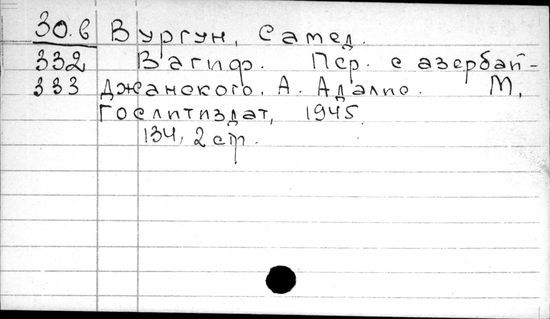 30.б Вургун, Самед.
332 Вагиф. Пер. с азербай-
333 джанского. А. Адалис. М,
Гослитиздат, 1945.
134, 2 стр.